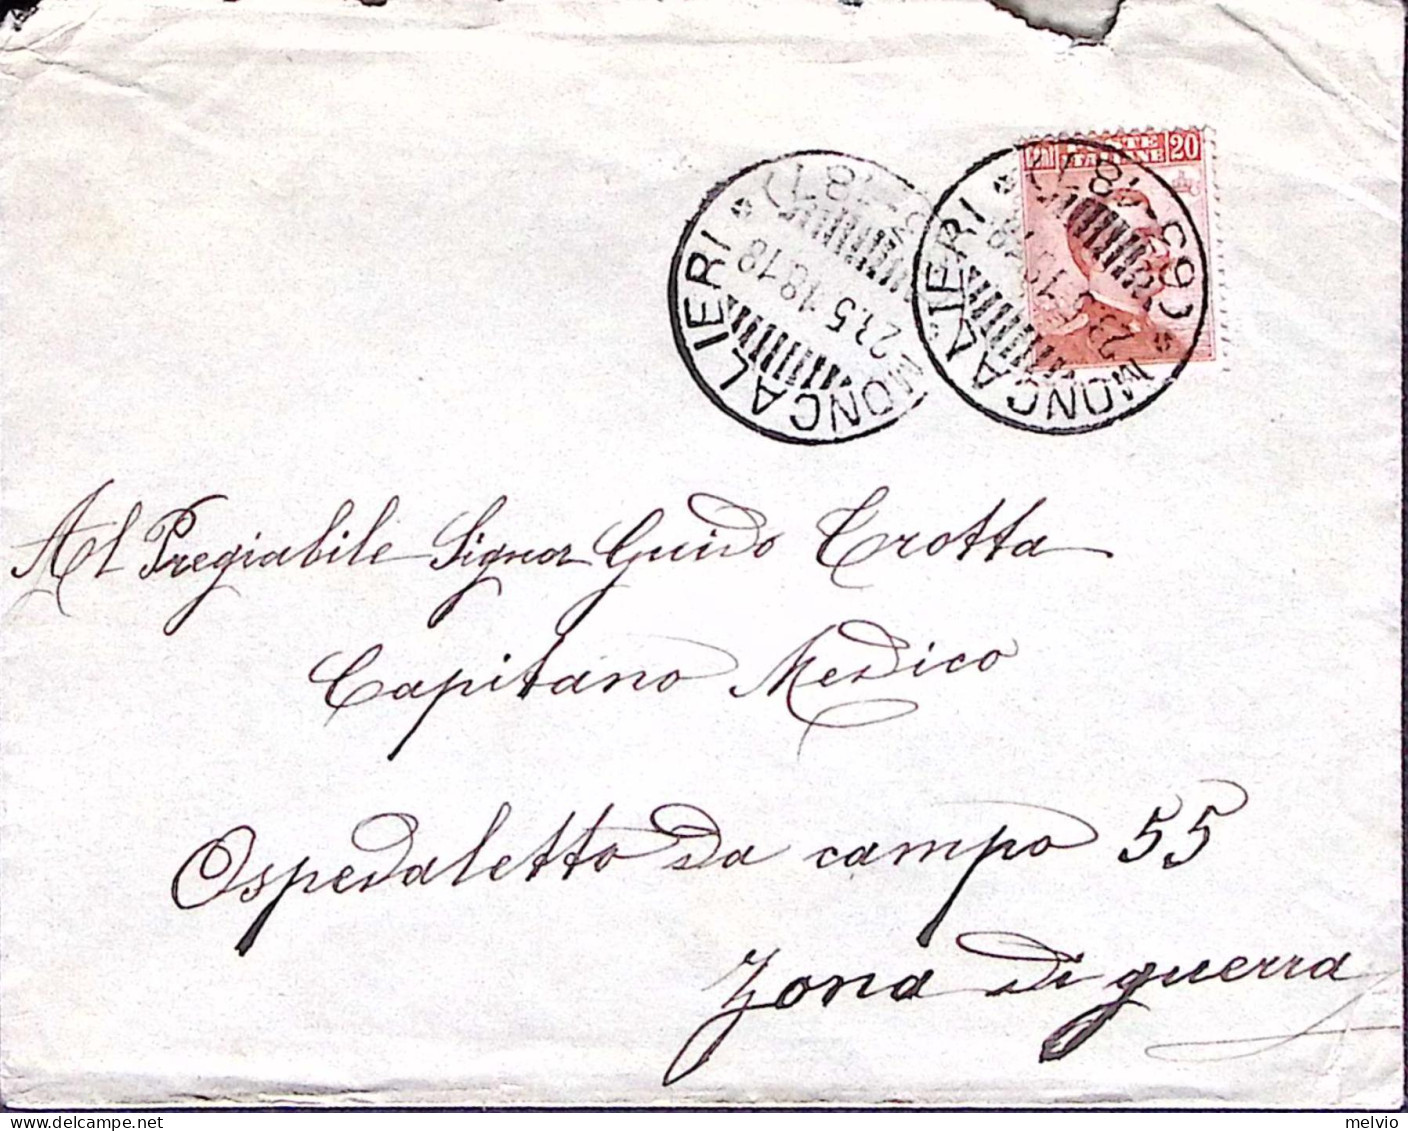 POSTE ITALIANE 20
MONCALIERI
23.5.18.18
MONCALIERI
Al Pregiabile Signor Guido Trotta
Capitano Medico
Ospedaletto da campo 55
Zona di guerra
melvio